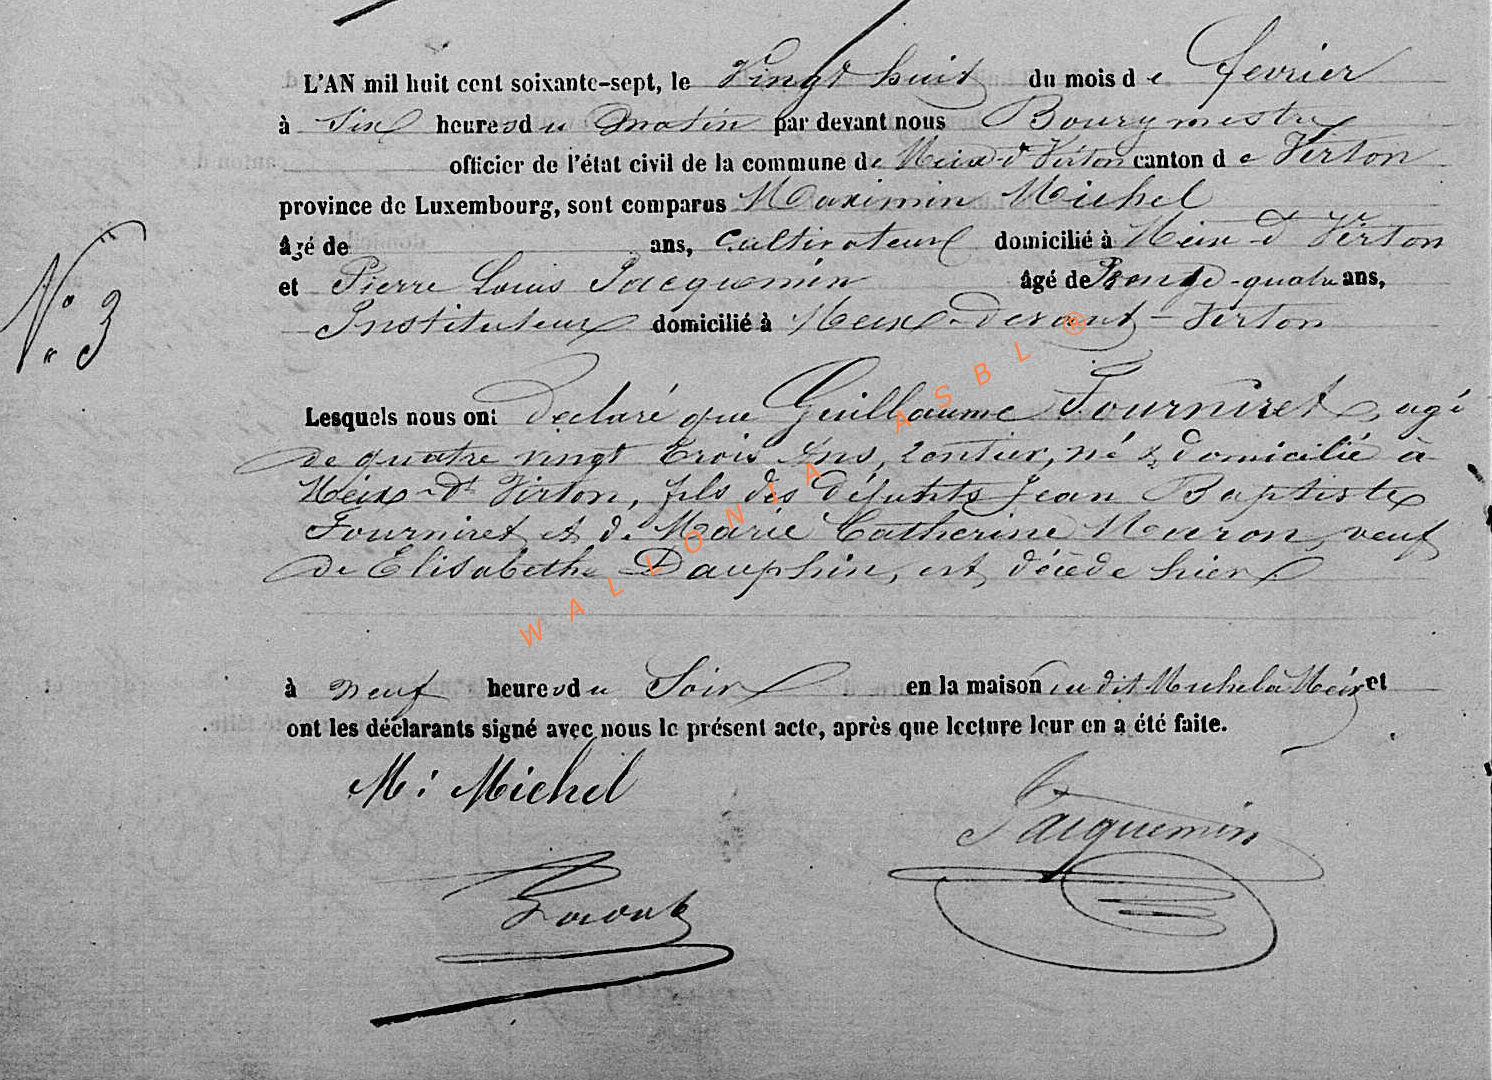 L'AN mil huit cent soixante-sept, le Vingt huit du mois de fevrier
à Six heures du Matin par devant nous Bourgmestre
officier de l'état civil de la commune de Meix-dt Virton canton de Virton
province de Luxembourg, sont comparus Maximin Michel
âgé de ans, Cultivateur domicilié à Meix-dt Virton
et Pierre Louis Jacquemin âgé de trente-quatre ans,
Instituteur domicilié à Meix-devant-Virton
N° 3
Lesquels nous ont déclaré que Guillaume Fourniret, agé
de quatre vingt trois ans, rentier, né & domicilié à
Meix-dt Virton, fils des défunts Jean Baptiste
Fourniret et de Marie Catherine Mouron, veuf
de Elisabeth Dauphin, est décédé hier
à neuf heures du Soir en la maison du dit Michel à Meix et
ont les déclarants signé avec nous le présent acte, après que lecture leur en a été faite.
M: Michel
Jacquemin
WALLONIA ASBL ®